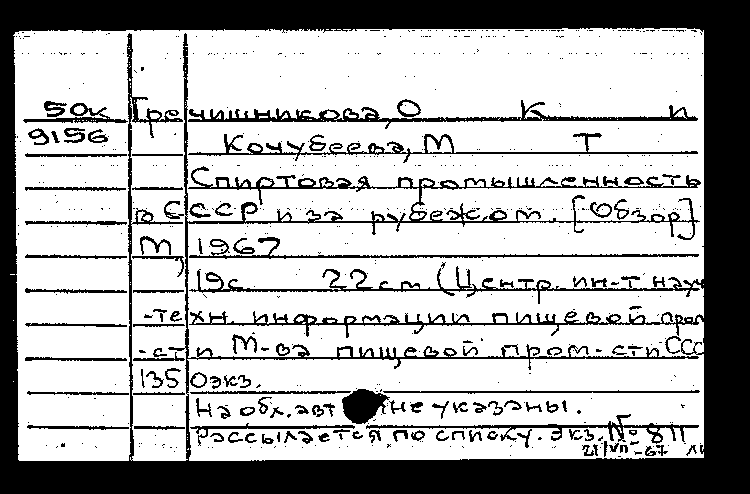 50к Гречишникова, О К и
9156 Кочубеева, М Т
Спиртовая промышленность
в СССР и за рубежом. [Обзор]
М, 1967
19с 22см (Центр. ин-т науч
-техн. информации пищевой пром
-сти М-ва пищевой пром-сти СССР
1350экз.
На обл. авт не указаны.
Рассылается по списку. Экз. № 811
21/VII-67